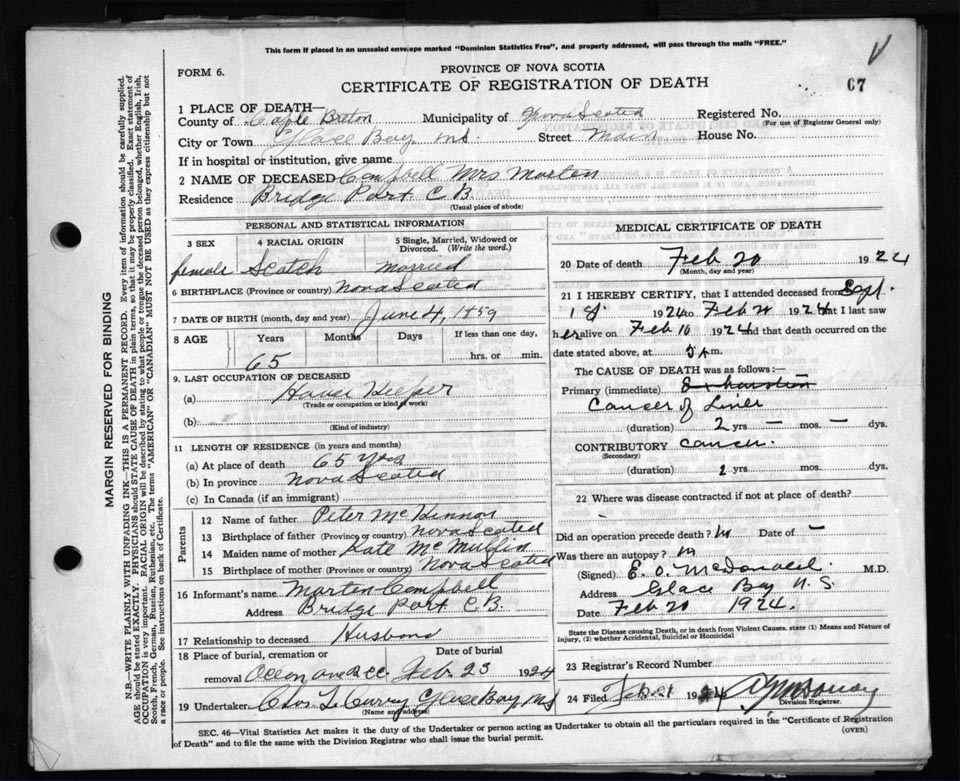 This form if placed in an unsealed envelope marked "Dominion Statistics Free", and properly addressed, will pass through the mails "FREE."
FORM 6.
PROVINCE OF NOVA SCOTIA
CERTIFICATE OF REGISTRATION OF DEATH
67
1 PLACE OF DEATH—
County of Cape Breton Municipality of Nova Scotia Registered No.
(For use of Registrar General only)
City or Town Glace Bay NS. Street Main House No.
If in hospital or institution, give name
2 NAME OF DECEASED Campbell Mrs Marten
Residence Bridge Port C B.
(Usual place of abode)
PERSONAL AND STATISTICAL INFORMATION
3 SEX 4 RACIAL ORIGIN 5 Single, Married, Widowed or Divorced. (Write the word.)
female Scotch married
6 BIRTHPLACE (Province or country) Nova Scotia
7 DATE OF BIRTH (month, day and year) June 4, 1859
8 AGE Years Months Days If less than one day,
65 hrs. or min.
9. LAST OCCUPATION OF DECEASED
(a) House Keeper
(Trade or occupation or kind of work)
(b)
(Kind of industry)
11 LENGTH OF RESIDENCE (in years and months)
(a) At place of death 65 yrs
(b) In province Nova Scotia
(c) In Canada (if an immigrant)
Parents
12 Name of father Peter McKinnon
13 Birthplace of father (Province or country) Nova Scotia
14 Maiden name of mother Kate
15 Birthplace of mother (Province or country) Nova Scotia
16 Informant's name Marten Campbell
Address Bridge Port C.B.
17 Relationship to deceased Husband
18 Place of burial, cremation or Date of burial
removal Feb. 23 1924
19 Undertaker Chas. L. Curry Glace Bay NS
(Name and address)
MEDICAL CERTIFICATE OF DEATH
20 Date of death Feb 20 1924
(Month, day and year)
21 I HEREBY CERTIFY, that I attended deceased from Sept.
1st 1924 to Feb 1924 that I last saw
her alive on Feb 10 1924 and that death occurred on the
date stated above, at 5 am.
The CAUSE OF DEATH was as follows:—
Primary (immediate) Exhaustion
Cancer of Liver
(duration) 2 yrs. — mos. — dys.
CONTRIBUTORY Cancer.
(Secondary)
(duration) 2 yrs. mos. dys.
22 Where was disease contracted if not at place of death?
Did an operation precede death? Date of —
Was there an autopsy?
(Signed) E. O. McDonald M.D.
Address Glace Bay N.S.
Date Feb 20 1924.
State the Disease causing Death, or in death from Violent Causes, state (1) Means and Nature of
Injury, (2) whether Accidental, Suicidal or Homicidal
23 Registrar's Record Number
24 Filed Feb 21 1924
Division Registrar.
SEC. 46—Vital Statistics Act makes it the duty of the Undertaker or person acting as Undertaker to obtain all the particulars required in the "Certificate of Registration
of Death" and to file the same with the Division Registrar who shall issue the burial permit.
(OVER)
MARGIN RESERVED FOR BINDING
N.B.—WRITE PLAINLY WITH UNFADING INK—THIS IS A PERMANENT RECORD. Every item of information should be carefully supplied.
AGE should be stated EXACTLY. PHYSICIANS should STATE CAUSE OF DEATH in plain terms, so that it may be properly classified. Exact statement of
OCCUPATION is very important. RACIAL ORIGIN will be described by stating to what people or tongue the deceased person belonged, whether English, Irish,
Scotch, French, German, Russian, Ruthenian, etc. The terms "AMERICAN" OR "CANADIAN" MUST NOT BE USED as they express citizenship but not
a race or people. See instructions on back of Certificate.